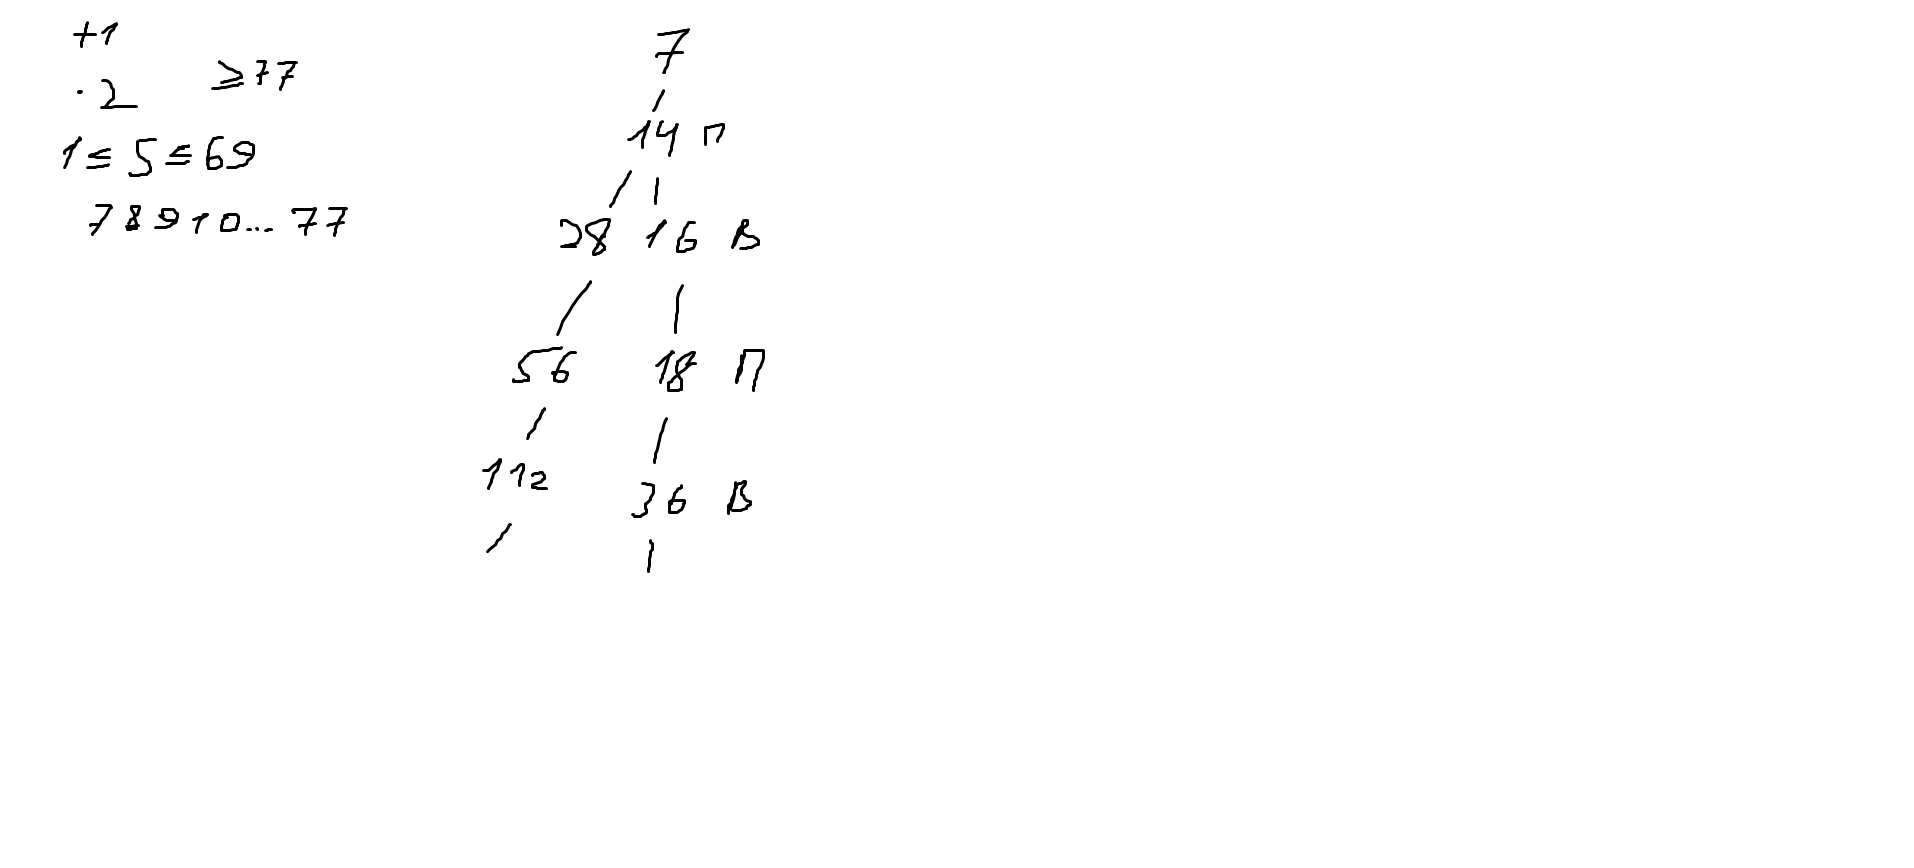 +1
· 2
≥ 77
1 ≤ S ≤ 69
7 8 9 10... 77
7
14 П
28 16 В
56 18 П
112
36 В